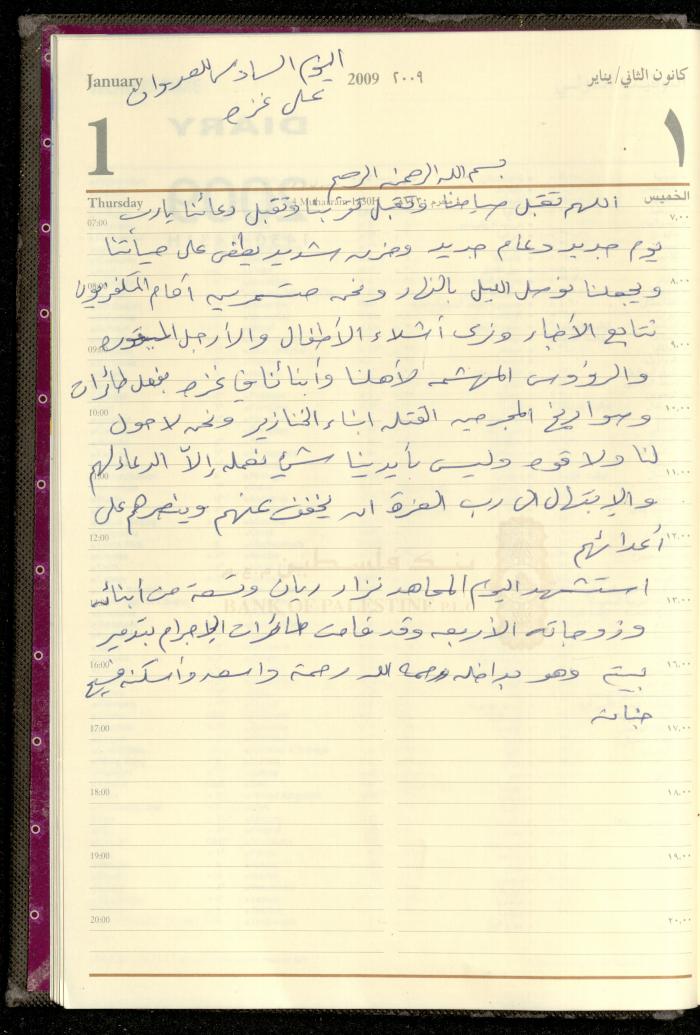 January
2009 ٢٠٠٩
كانون الثاني/يناير
اليوم السادس للعدوان
على غزه
1
١
بسم الله الرحمن الرحيم
Thursday
الخميس
اللهم تقبل صيامنا وتقبل توبتنا وتقبل دعائنا يارب
يوم جديد وعام جديد وحزن شديد يطغى على حياتنا
ويجعلنا نوصل الليل بالنهار ونحن متسمرين أمام التلفزيون
نتابع الأخبار ونرى أشلاء الأطفال والأرجل المبتوره
والرؤوس المهشمه لأهلنا وأبنائنا في غزه بفعل طائرات
وصواريخ المجرمين القتله ابناء الخنازير ونحن لا حول
لنا ولا قوه وليس بأيدينا شئ نعمله إلاّ الدعاء لهم
والإبتهال الى رب العزة ان يخفف عنهم وينصرهم على
أعدائهم
استشهد اليوم المجاهد نزار ريان وتسعة من أبنائه
وزوجاته الأربعه وقد قامت طائرات الإجرام بتدمير
بيته وهو بداخله رحمه الله رحمة واسعه وأسكنه فسيح
جناته
بنك فلسطين
BANK OF PALESTINE
07:00
٧.٠٠
08:00
٨.٠٠
09:00
٩.٠٠
10:00
١٠.٠٠
11:00
١١.٠٠
12:00
١٢.٠٠
١٣.٠٠
16:00
١٦.٠٠
17:00
١٧.٠٠
18:00
١٨.٠٠
19:00
١٩.٠٠
20:00
٢٠.٠٠